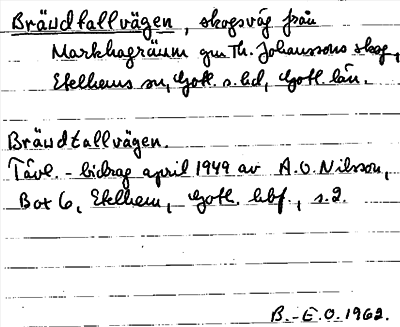 Bräudtallvägen, skogsväg från
Markhagräum gm Th. Johanssons skog,
Etelhems sn, Gotl. s. hd, Gotl. län.
Bräudtallvägen.
Tävl.-bidrag april 1949 av A.O. Nilsson,
Box 6, Etelhem, Gotl. hbf., s.2.
B.-E.O. 1962.